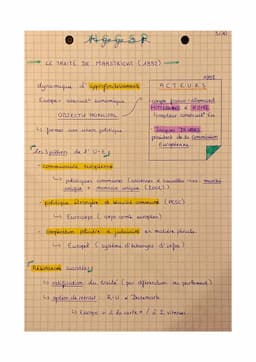 HGGSP
LE TRAITÉ DE MAASTRICHT (1992)
dynamique d'approfondissement
Europe
OBJECTIF PRINCIPAL
↳ former une union politique
ACTEURS
couple franco-allemand
MITTERRAND & KOHL
"moteur constructif" €
Jacques DELORS
président de la Commission
Européenne
Les 3 piliers de l'U.E
- communauté européenne
↳ politiques communes
marché
unique + monnaie unique
- politique étrangère et sécurité commune (PESC)
↳ Eurocorps (corps armée européen)
- coopération policière & judiciaire en matière pénale
↳ Europol (système d'échanges d'infos)
Résistances
↳ ratification du traité (par référendum ou parlement)
↳ option de retrait R-U & Danemark
↳ Europe "à la carte" / à 2 vitesses